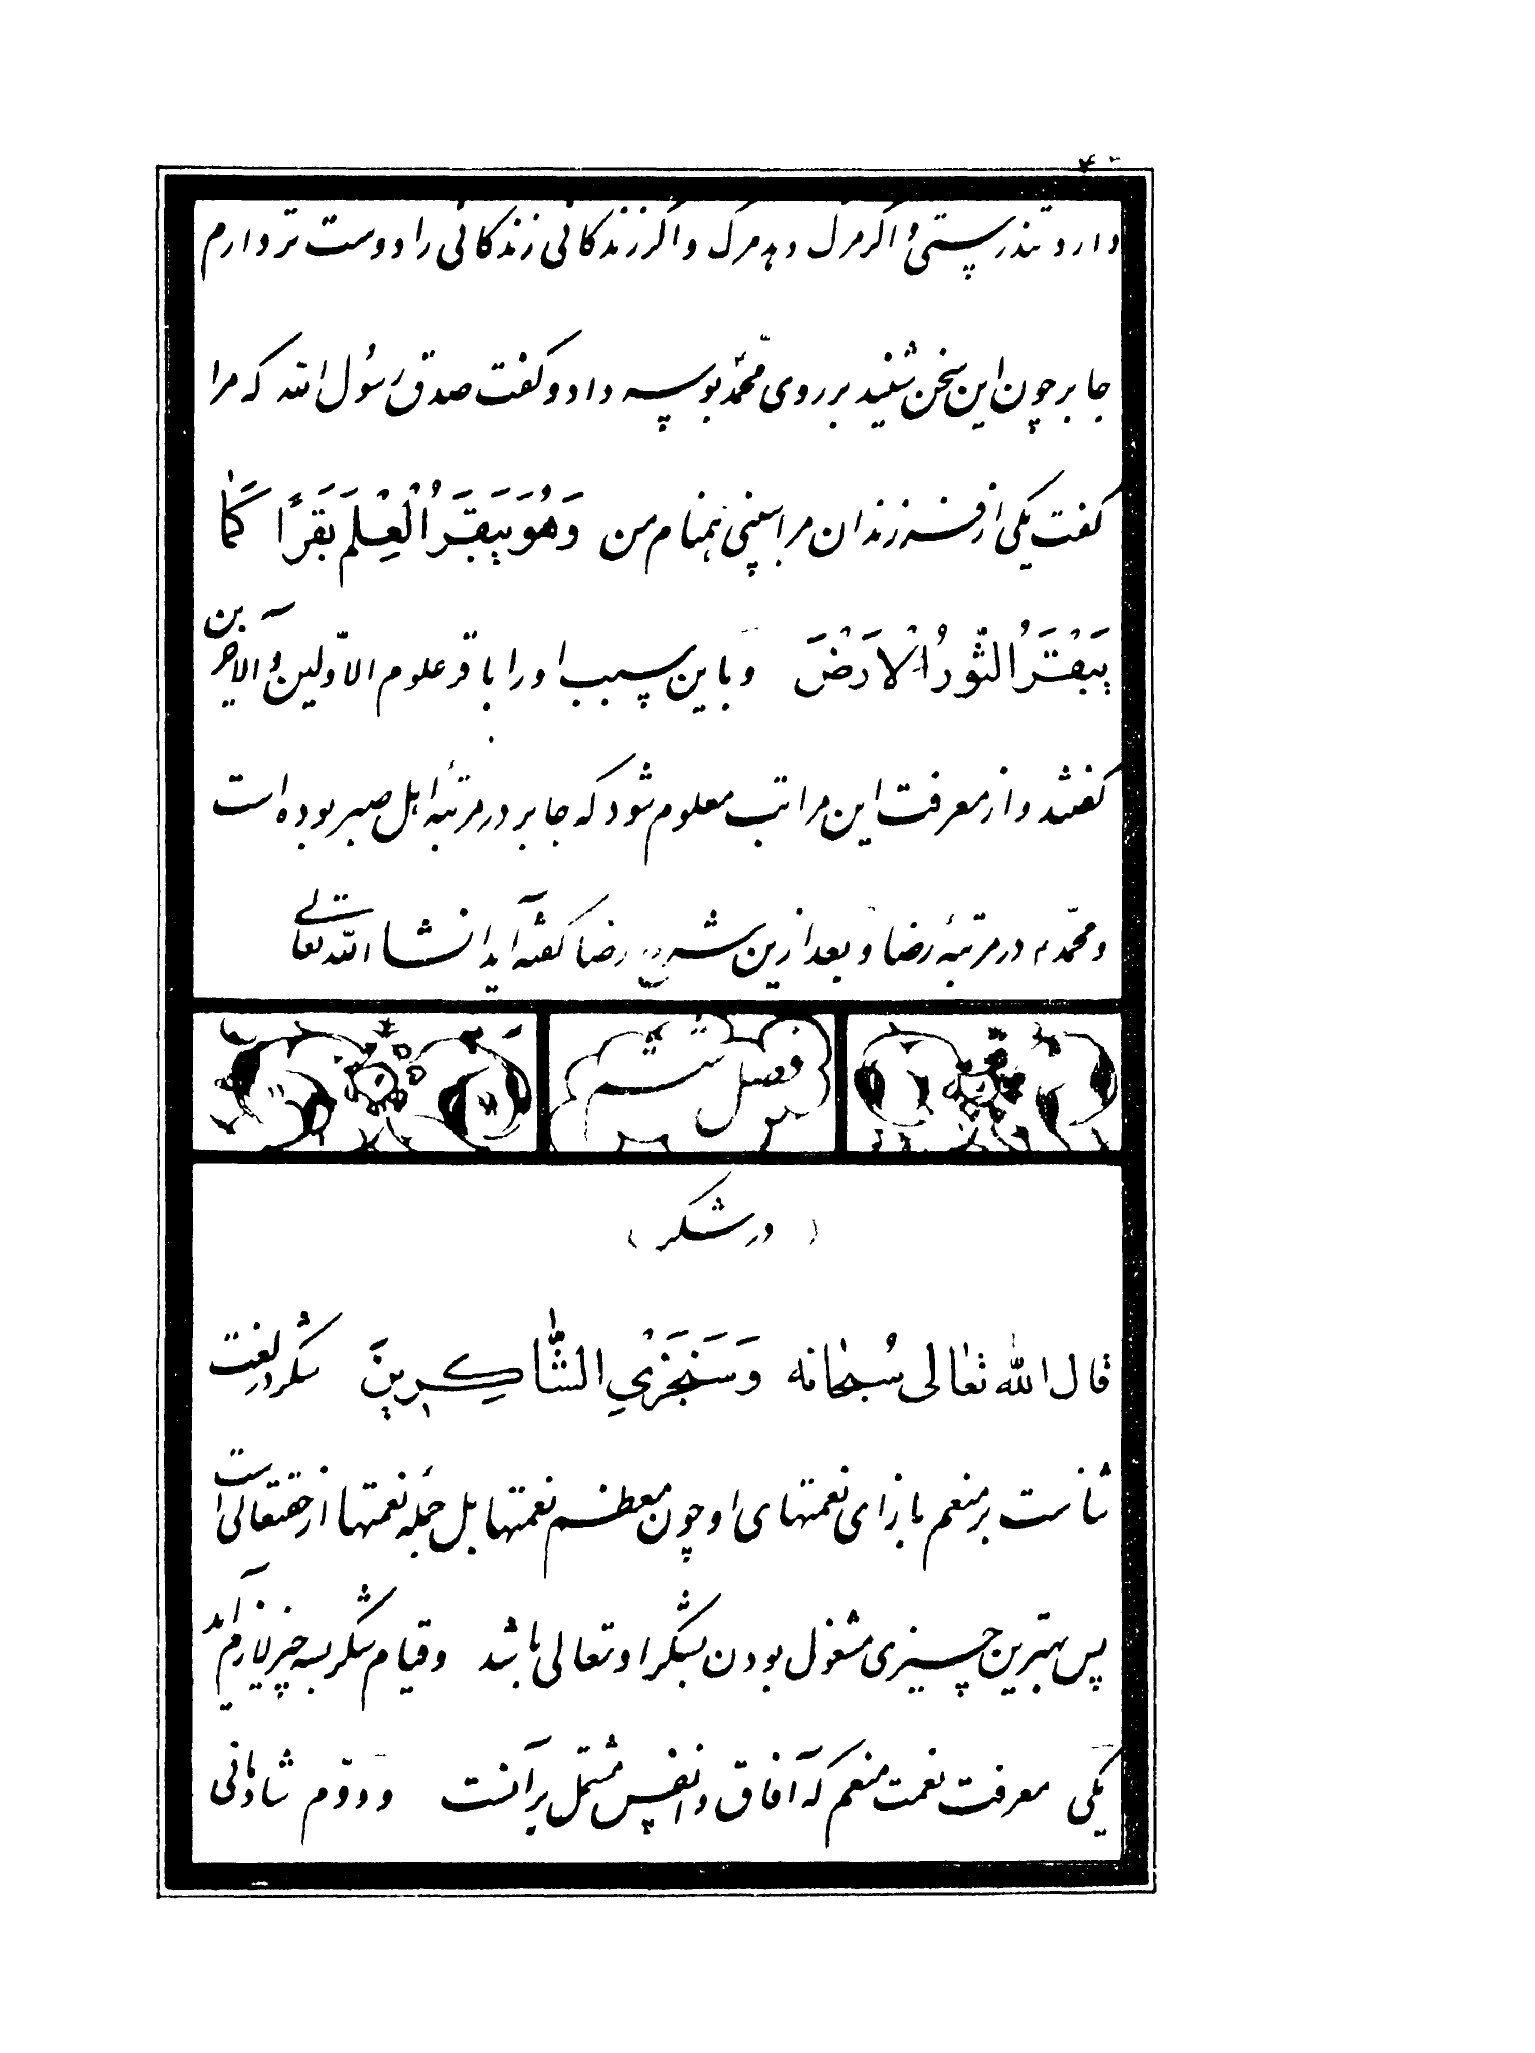 دارد تندرستی و اگر مرگ دهد مرگ و اگر زندگانی زندگانی را دوست تر دارم
جابر چون این سخن شنید بر روی محمّد بوسه داد و گفت صدق رسول الله که مرا
گفت یکی از فرزندان مرا ببینی همنام من وَهُوَ یَبقَرُ الْعِلمَ بَقَرًا کَمٰا
یَبْقَرُ الثَّورُ الْاَرْضَ و باین سبب او را باقر علوم الاوّلین و الآخرین
گفتند و از معرفت این مراتب معلوم شود که جابر در مرتبهٔ اهل صبر بوده است
و محمّد م در مرتبهٔ رضا و بعد ازین شرح رضا گفته آید انشا الله تعالی
فصل ششم
( در شکر )
قال الله تعالی سُبحانه وَسَنَجْزِي الشّٰاکِرِینَ شکر در لغت
ثناست بر منعم بازای نعمتهای او چون معظم نعمتها بل جملهٔ نعمتها از حقتعالی است
پس بهترین چیزی مشغول بودن بشکر او تعالی باشد و قیام بشکر بسه چیز لازم آید
یکی معرفت نعمت منعم که آفاق و انفس مشتمل برآنست و دوّم شادمانی